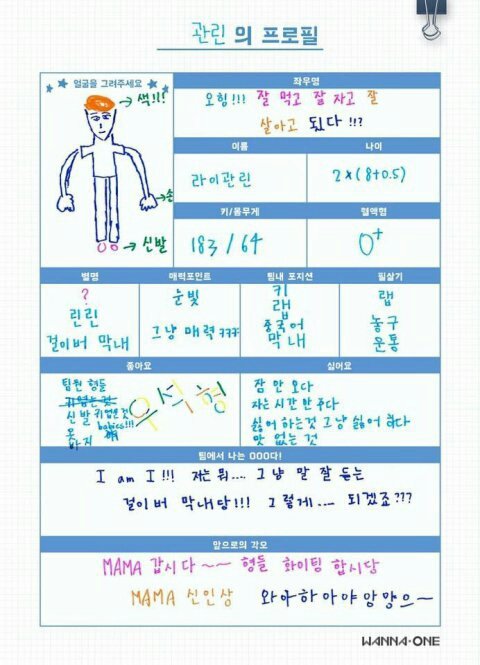 관린의 프로필
얼굴을 그려주세요
색!!!
손
신발
좌우명
오힘!!! 잘 먹고 잘 자고 잘
살아고 되다 !!?
이름
라이관린
나이
2×(8+0.5)
키/몸무게
183 / 64
혈액형
O+
별명
?
린린
걸이버 막내
매력포인트
눈빛
그냥 매력 ㅋㅋㅋ
팀내 포지션
키
랩
중국어
막내
필살기
랩
농구
운통
좋아요
팀원 형들
신발 귀엽은 것
babies!!!
옷
바지
우석형
싫어요
잠 안 오다
자는 시간 안 주다
싫어 하는것 그냥 싫어 하다
맛 없는 것
팀에서 나는 OOO다!
I am I !!! 저는 뭐.... 그냥 말 잘 듣는
걸이버 막내당!!! 그렇게.... 되겠죠???
앞으로의 각오
MAMA 갑시다~~ 형들 화이팅 합시당
MAMA 신인상 와아하아야앙망으~
WANNA·ONE